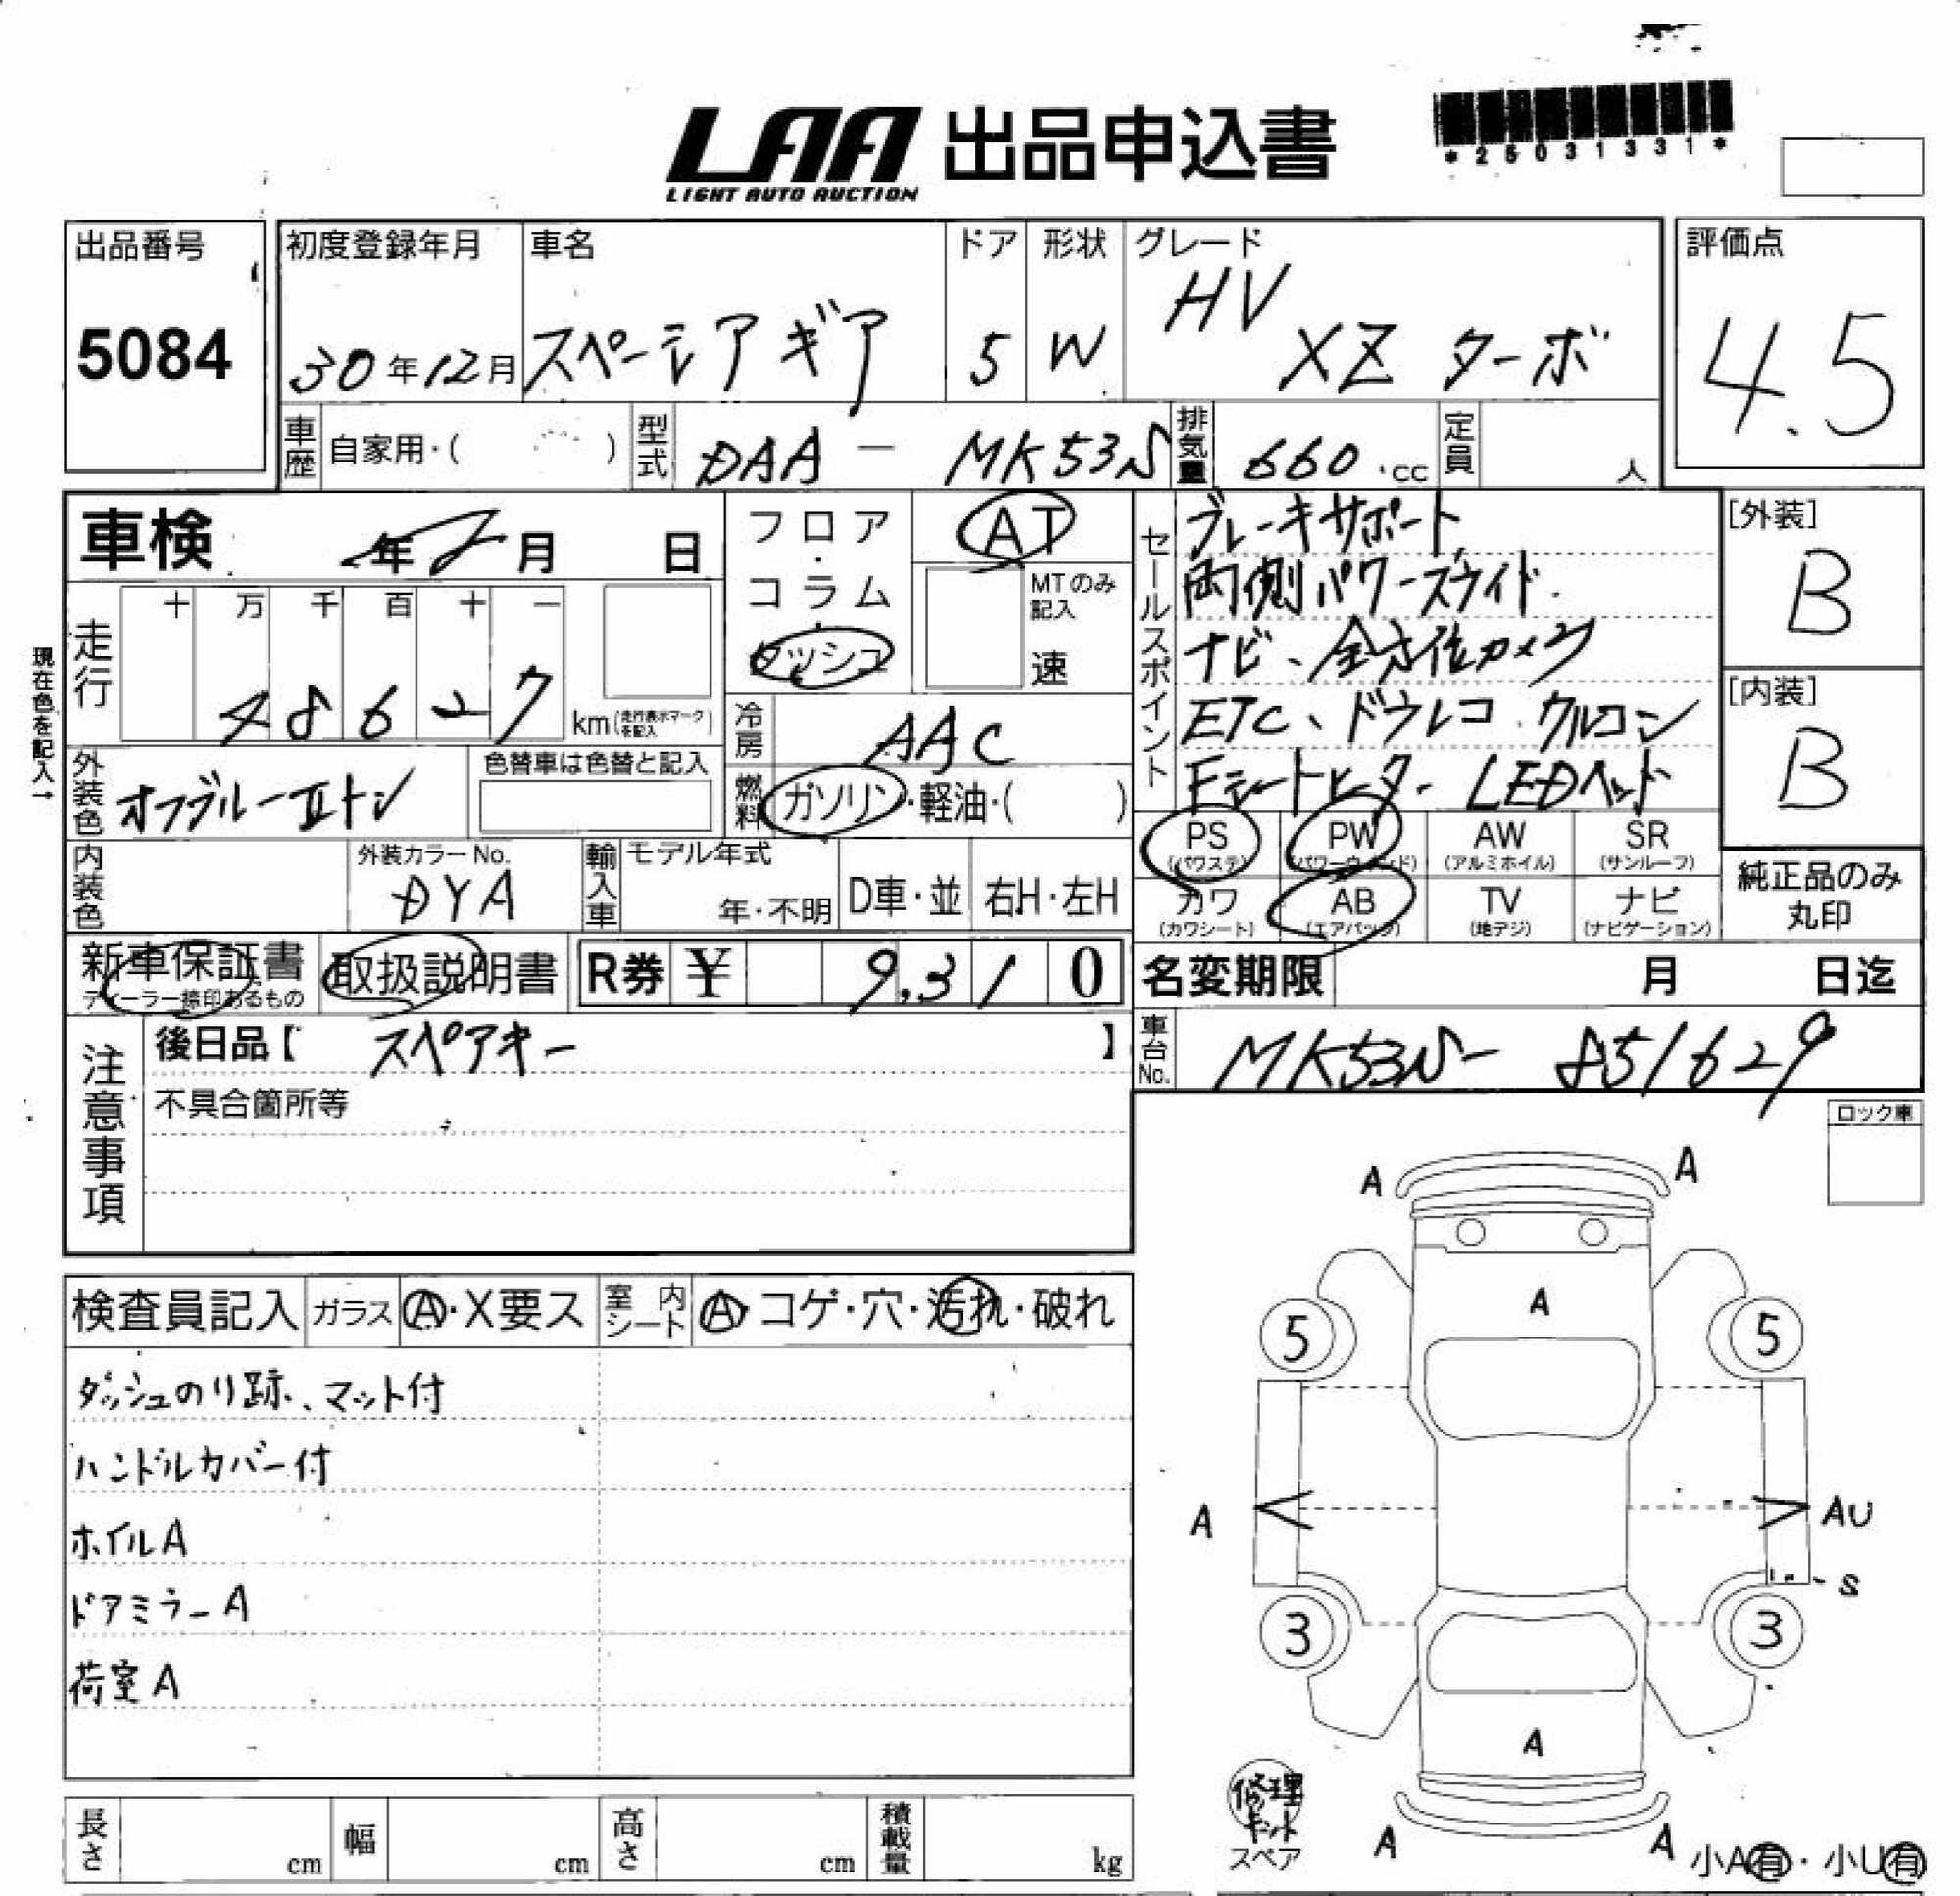 LAA 出品申込書
LIGHT AUTO AUCTION
*25031331*
出品番号
5084
初度登録年月
30年12月
車名
スペーシアギア
ドア
5
形状
W
グレード
HV
XZ ターボ
評価点
4.5
車歴
自家用・( )
型式
DAA - MK53S
排気量
660 cc
定員
人
車検 年 月 日
フロア・コラム・ダッシュ
AT
MTのみ記入
速
走行
十 万 千 百 十 一
4 8 6 2 7
km(走行表示マークを記入)
現在色を記入→
冷房
AAC
外装色
オフブルーⅡトン
色替車は色替と記入
燃料
ガソリン・軽油・( )
内装色
外装カラーNo.
DYA
輸入車
モデル年式
年・不明
D車・並
右H・左H
セールスポイント
ブレーキサポート
両側パワースライド
ナビ、全方位カメラ
ETC、ドラレコ、クルコン
Fシートヒーター LEDヘッド
[外装]
B
[内装]
B
PS
(パワステ)
PW
(パワーウィンド)
AW
(アルミホイル)
SR
(サンルーフ)
カワ
(カワシート)
AB
(エアバック)
TV
(地デジ)
ナビ
(ナビゲーション)
純正品のみ
丸印
新車保証書
ディーラー捺印あるもの
取扱説明書
R券 ¥ 9,310
名変期限 月 日迄
車台No.
MK53S- 851629
注意事項
後日品【 スペアキー 】
不具合箇所等
ロック車
検査員記入
ガラス
A・X要ス
室内シート
A・コゲ・穴・汚れ・破れ
ダッシュのり跡、マット付
ハンドルカバー付
ホイルA
ドアミラーA
荷室A
A A
A
5 5
A AU
S
3 3
A
A A
修理キット
スペア
小A有・小U有
長さ cm
幅 cm
高さ cm
積載量 kg